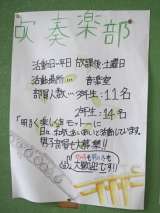 吹奏楽部
活動日…平日 放課後・土曜日
活動場所… 音楽室
部員人数… 2年生：11名
3年生：14名
「明るく楽しく」をモットーに
日々、
活動しています。
男子部員も大募集!!
大歓迎です!!